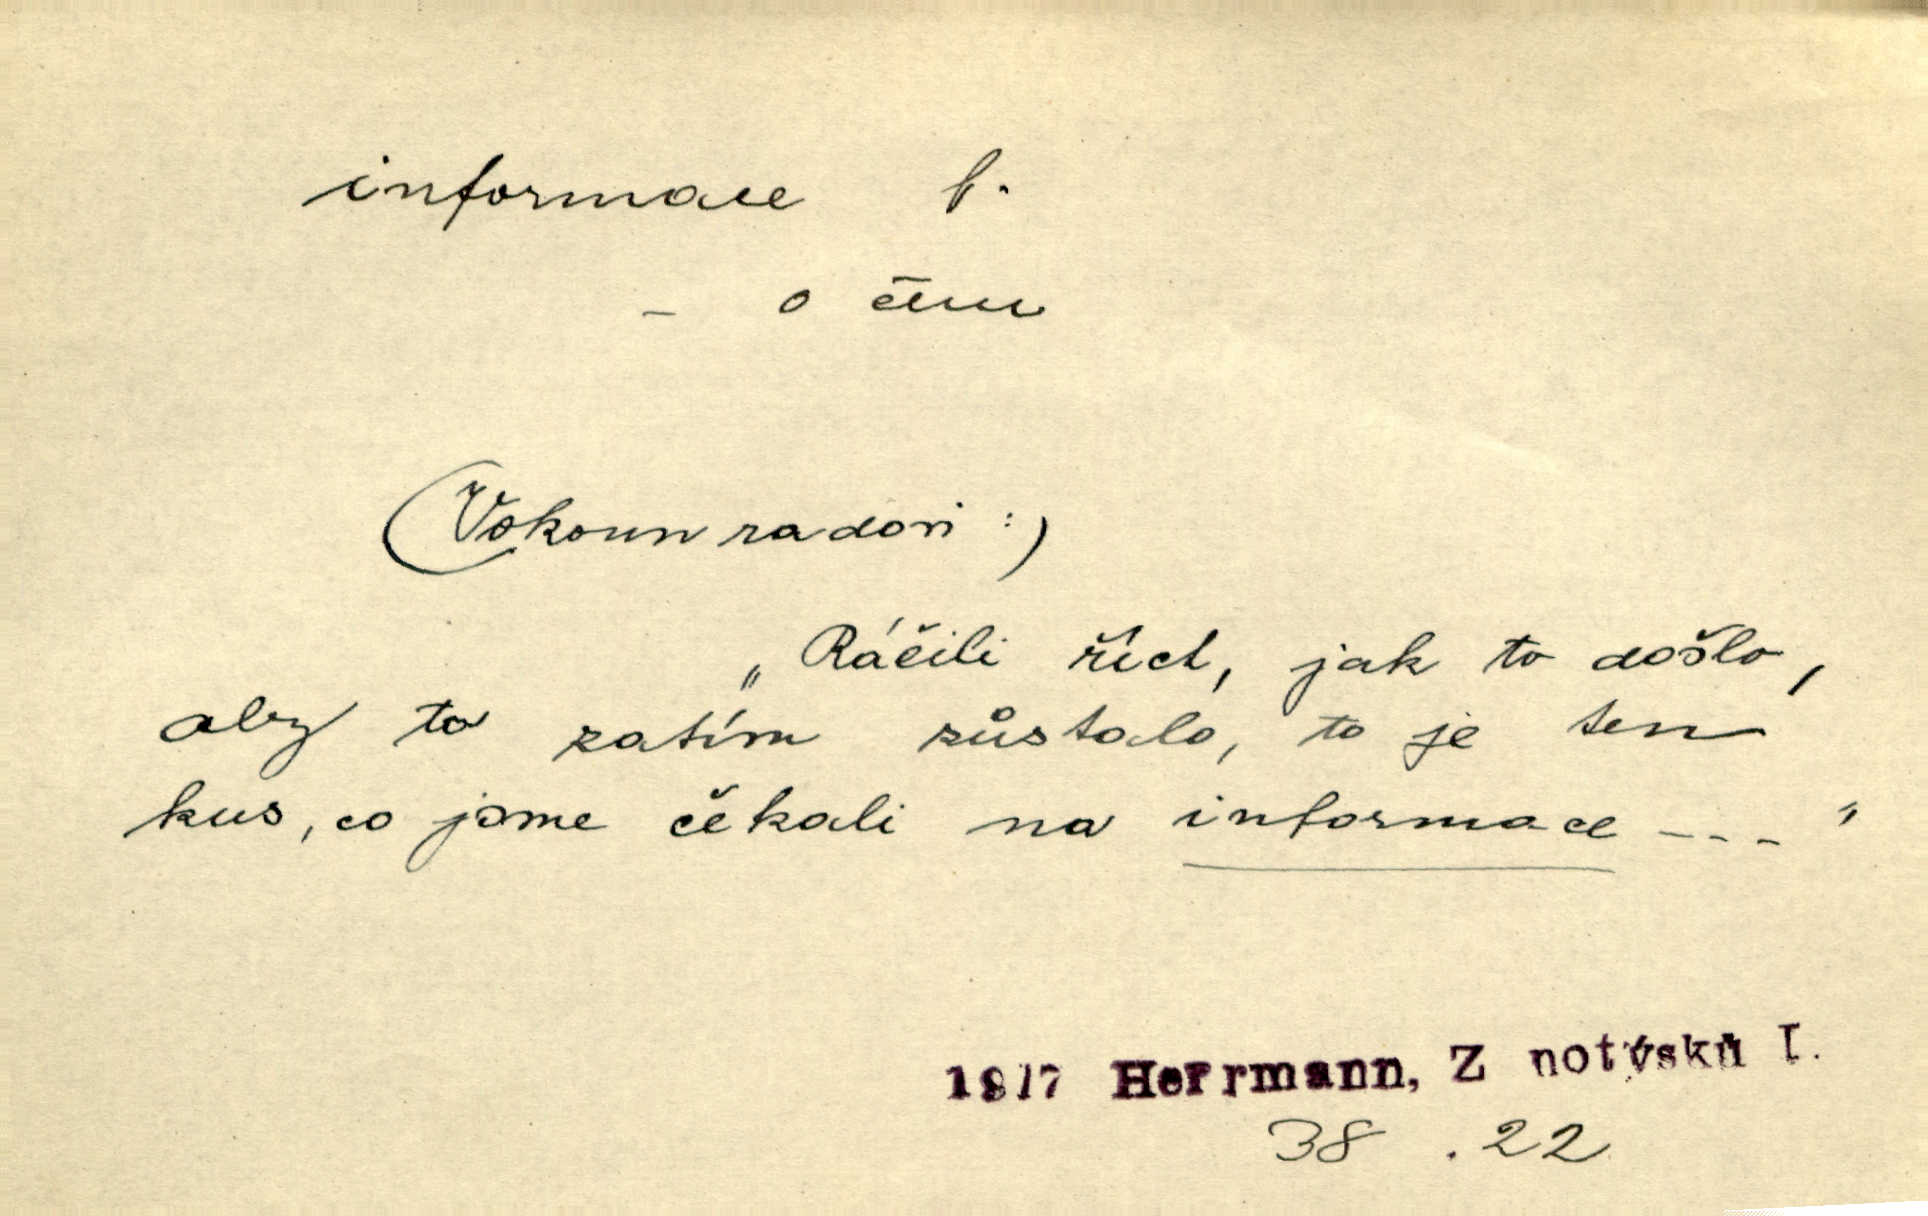 informace f.
- o čem
(Vokoun radovi:)
„Ráčili říct, jak to došlo,
aby to zatím zůstalo, to je ten
kus, co jsme čekali na informace ---"
1917 Herrmann, Z notýsků I.
38 . 22